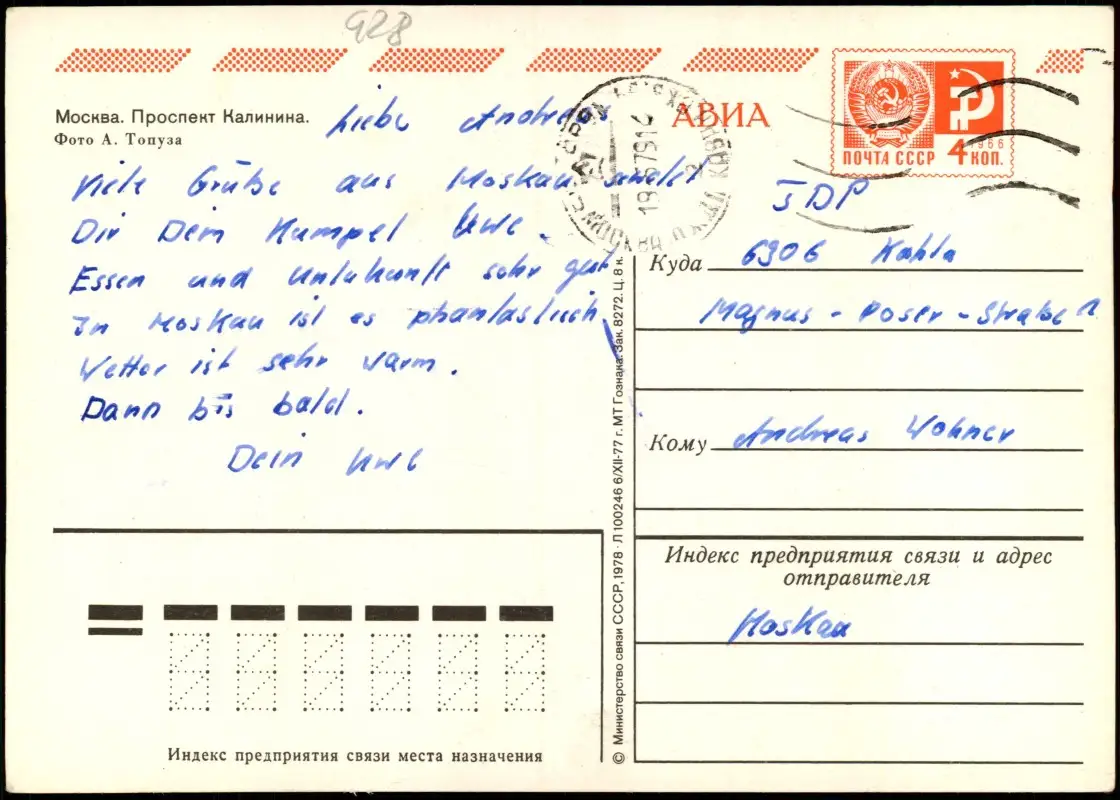 928
Москва. Проспект Калинина.
Фото А. Топуза
Liebe Andreas
Viele Grüße aus Moskau sendet
Dir Dein Kumpel Uwe.
Essen und Unterkunft sehr gut
In Moskau ist es phantastisch.
Wetter ist sehr warm.
Dann bis bald.
Dein Uwe
АВИА
ПОЧТА СССР 4 КОП.
1966
Куда 6906 Kahla
Magnus-Poser-Straße
Кому Andreas Wohner
Индекс предприятия связи и адрес
отправителя
Moskau
© Министерство связи СССР, 1978 · Л 100246 6/XII-77 г. МТ Гознака. Зак. 8272. Ц. 8 к.
Индекс предприятия связи места назначения